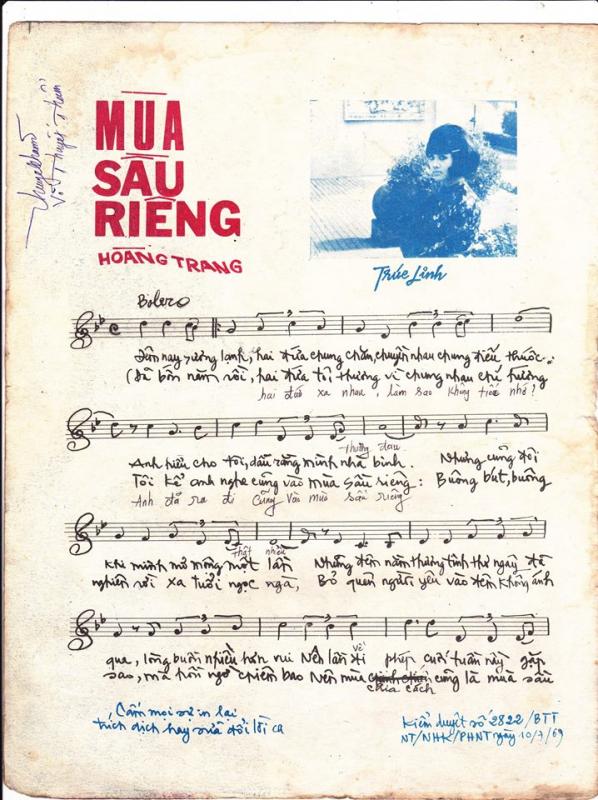 MÙA
SẦU
RIÊNG
HOÀNG TRANG
Trúc Linh
Bolero
Đêm nay sương lạnh, hai đứa chung chăn, chuyện nhau chung điếu thuốc.
(Đã bốn năm rồi, hai đứa tôi thương vì chung nhau chí hướng
hai đứa xa nhau, làm sao không tiếc nhớ?
thường dân
Anh hiểu cho tôi, dẫu rằng mình nhà binh. Nhưng cũng đôi
Tôi kể anh nghe cũng vào mùa sầu riêng: Buông bút, buông
Anh đã ra đi cũng vào mùa sầu riêng
thật nhiều
khi mình mơ mộng một lần Những đêm nằm thương tình thư ngày đã
nghiên rồi xa tuổi ngọc ngà, Bỏ quên người yêu vào đêm không ánh
qua, lòng buồn nhiều hơn vui Nên lần đi về phép cuối tuần này gặp
sao, mà hồi ngỡ chiêm bao Nên mùa chinh chiến cũng là mùa sầu
chia cách
Cấm mọi sự in lại
trích dịch hay sửa đổi lời ca
Kiểm duyệt số 2822/BTT
NT/NHK/PHNT ngày 10/7/69